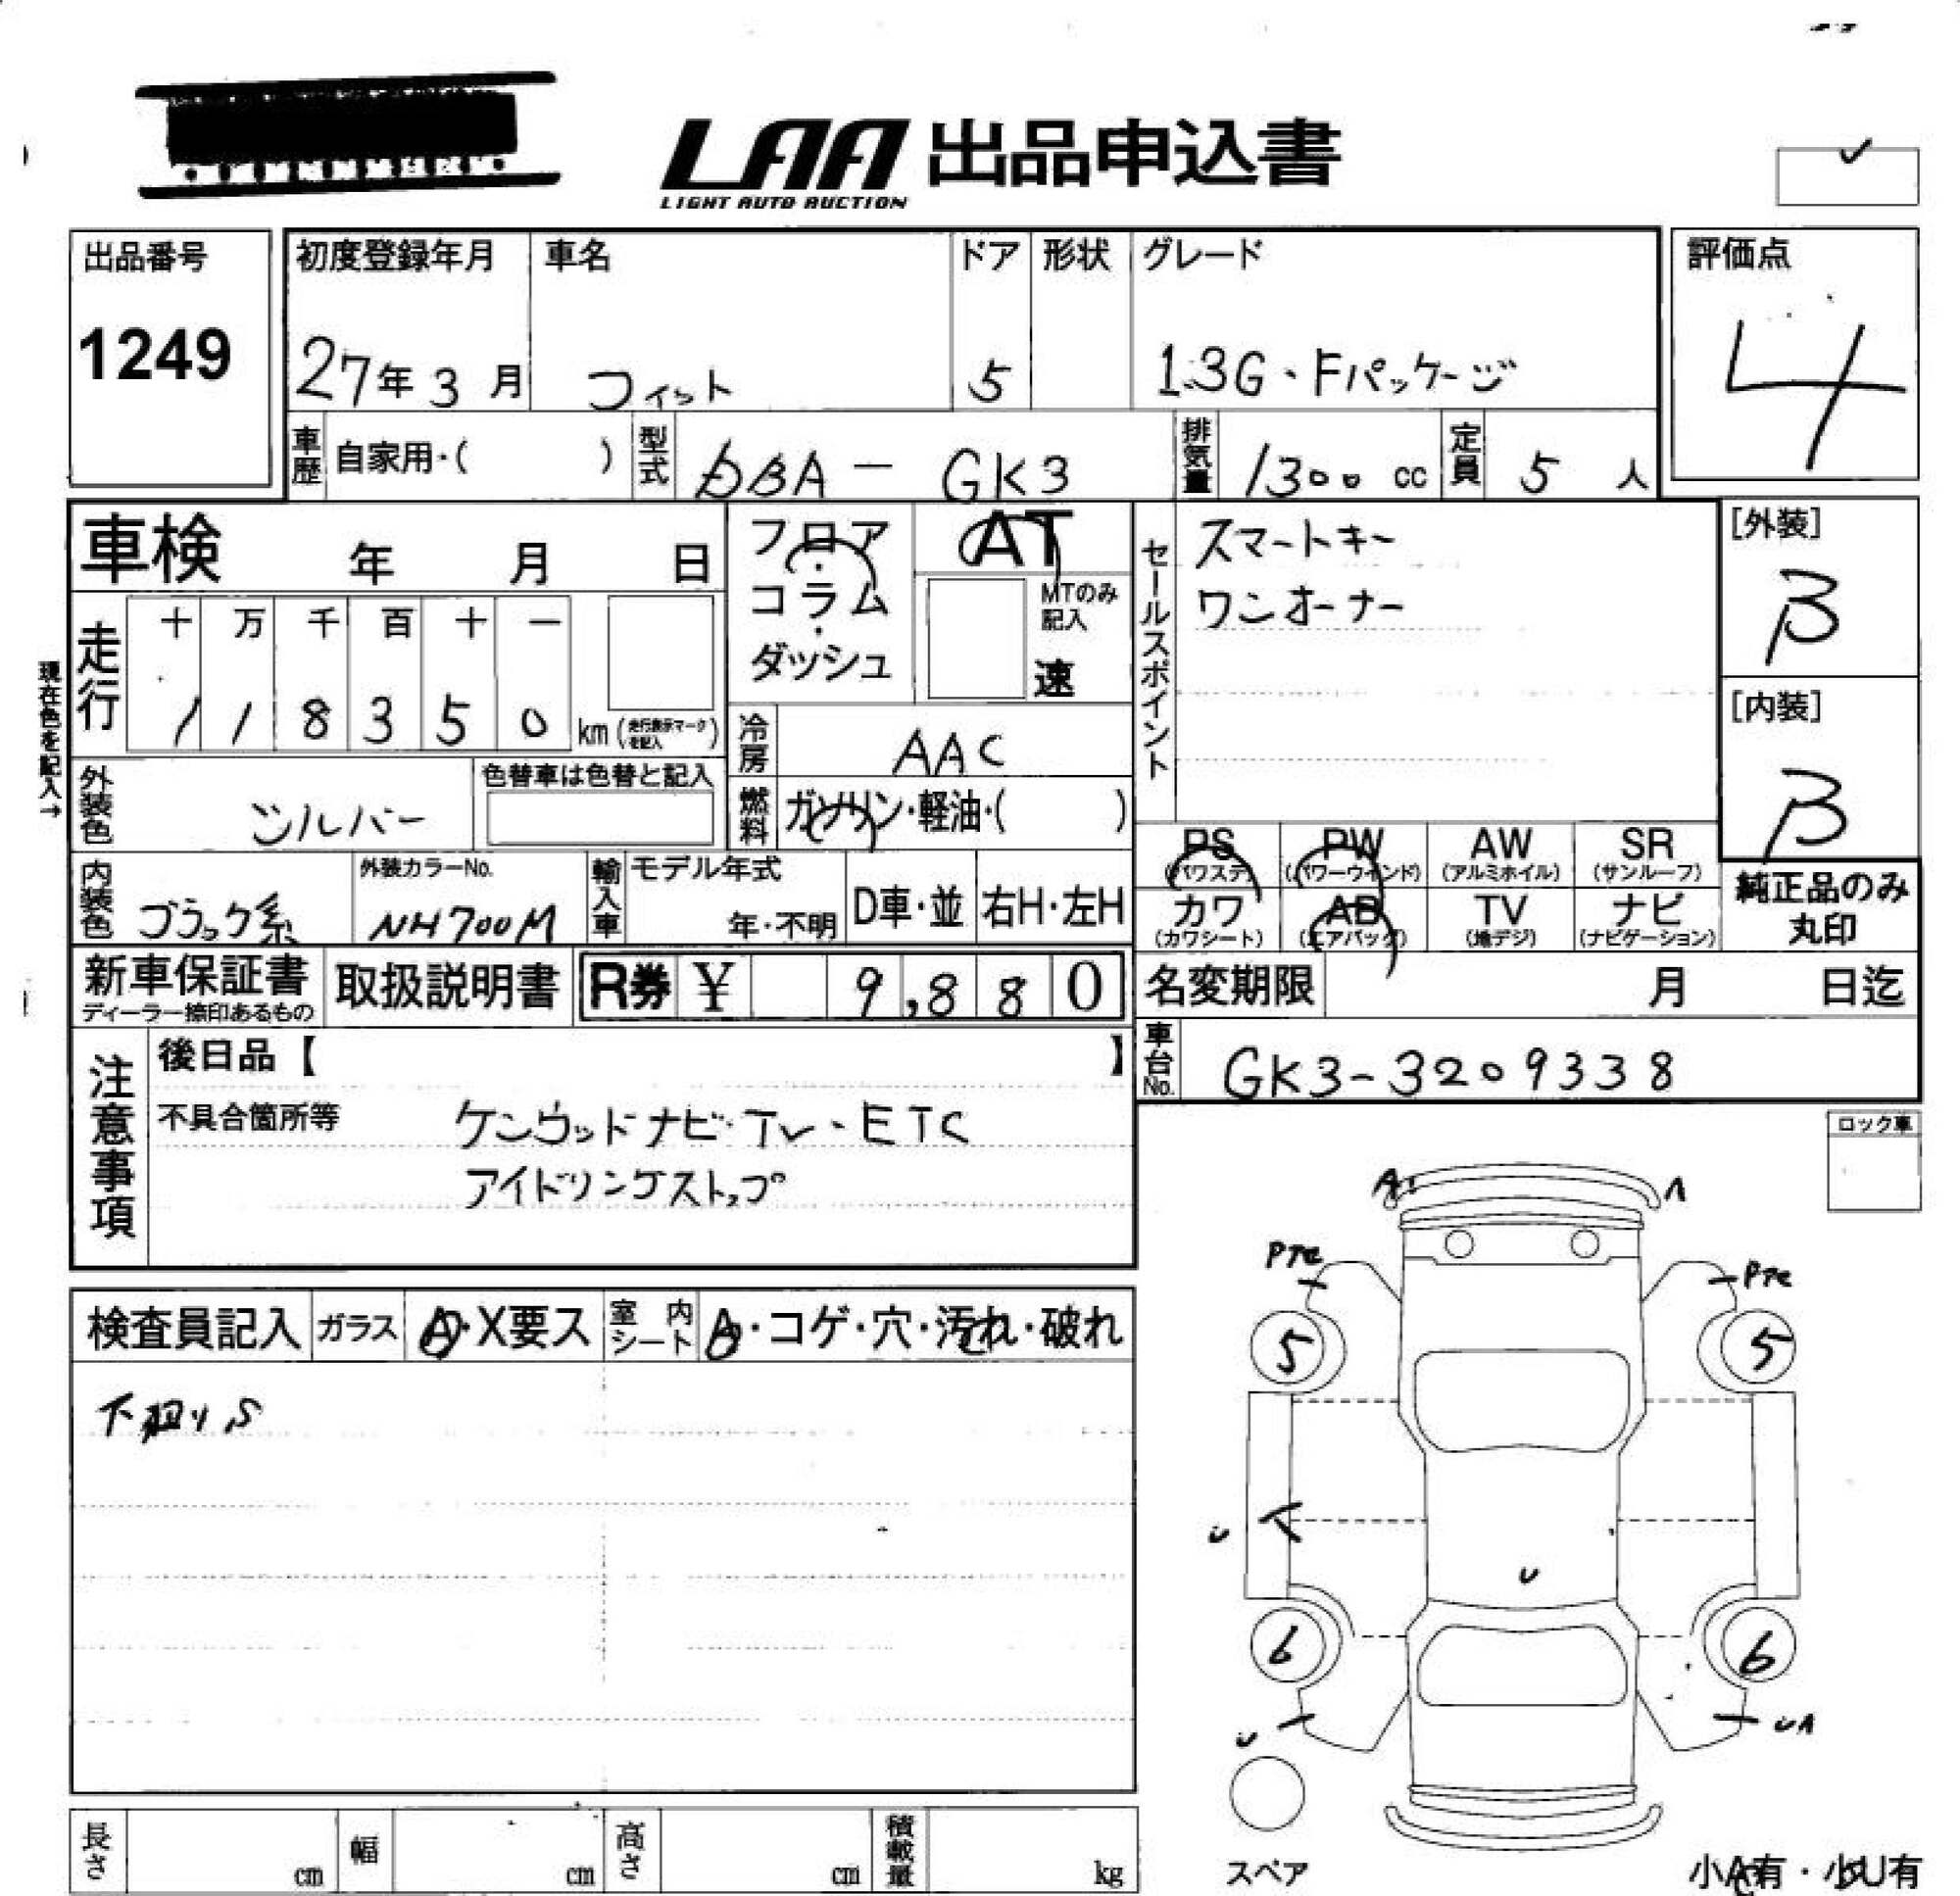 LAA 出品申込書
LIGHT AUTO AUCTION
出品番号
1249
初度登録年月
27年3月
車名
フィット
ドア
5
形状
グレード
1.3G・Fパッケージ
評価点
4
車歴 自家用・( )
型式 DBA - GK3
排気量 1300 cc
定員 5 人
車検 年 月 日
フロア・コラム・ダッシュ
AT
MTのみ記入
速
セールスポイント
スマートキー
ワンオーナー
[外装]
B
[内装]
B
現在色を記入→
走行
十 万 千 百 十 一
1 1 8 3 5 0 km (走行表示マークを記入)
冷房 AAC
外装色 シルバー
色替車は色替と記入
燃料 ガソリン・軽油・( )
PS (パワステ)
PW (パワーウインド)
AW (アルミホイル)
SR (サンルーフ)
カワ (カワシート)
AB (エアバッグ)
TV (地デジ)
ナビ (ナビゲーション)
純正品のみ
丸印
内装色 ブラック系
外装カラーNo.
NH700M
輸入車
モデル年式
年・不明
D車・並
右H・左H
新車保証書
ディーラー捺印あるもの
取扱説明書
R券 ¥ 9,880
名変期限 月 日迄
車台No. GK3-3209338
注意事項
後日品【 】
不具合箇所等
ケンウッドナビ・TV・ETC
アイドリングストップ
ロック車
検査員記入
ガラス A・X要ス
室内シート A・コゲ・穴・汚れ・破れ
下廻りS
A
A
PTし
PTし
5
5
U
U
6
6
U
UA
スペア
小A有・小U有
長さ cm
幅 cm
高さ cm
積載量 kg